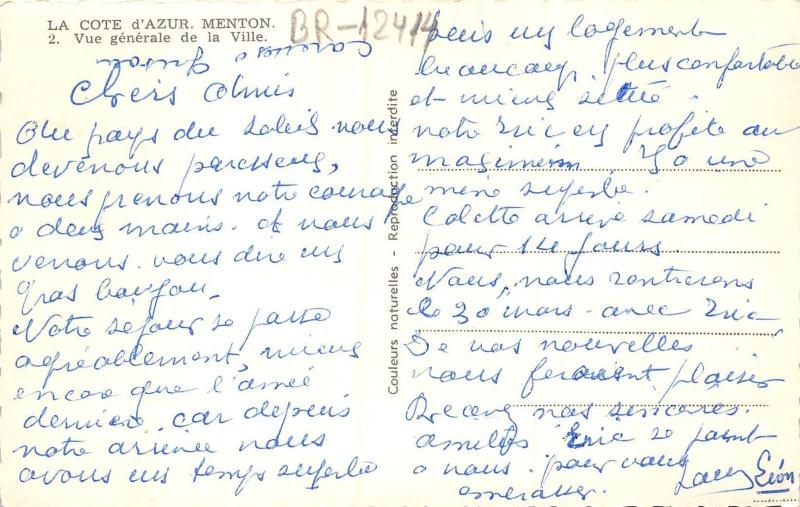 LA COTE d'AZUR. MENTON.
2. Vue générale de la Ville.
BR-12414
Chers Amis
Au pays du soleil nous
devenous paresseux,
nous prenons notre courage
a deux mains. et nous
venons. vous dire un
gras bonjou.
Notre séjour se passe
agréablement, mieux
encore que l'année
dernière. car depuis
notre arrivée nous
avons un temps superbe
puis un logement
beaucoup, plus confortable
et mieux situé.
notre Eric en profite au
maximum a une
mine superbe.
Colette arrive samedi
pour 14 jours.
Nous, nous rentrerons
le 30 mars. avec Eric
De vos nouvelles
nous feraient plaisir
Recevez nos sincères.
amitiés Eric se joint
a nous. pour vous
embrasser. Léon
Couleurs naturelles - Reproduction interdite